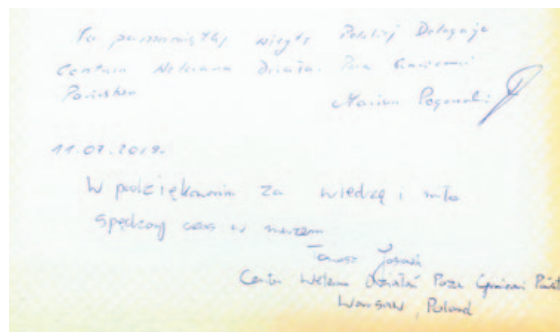 wizyty Polskiej Delegacji
Centrum Weterana Działań Poza Granicami
Państwa
Marian
11.07.2019r.
W podziękowaniu za wiedzę i miło
spędzony czas w muzeum
Tomasz
Centrum Weterana Działań Poza Granicami Państ
Warsaw, Poland